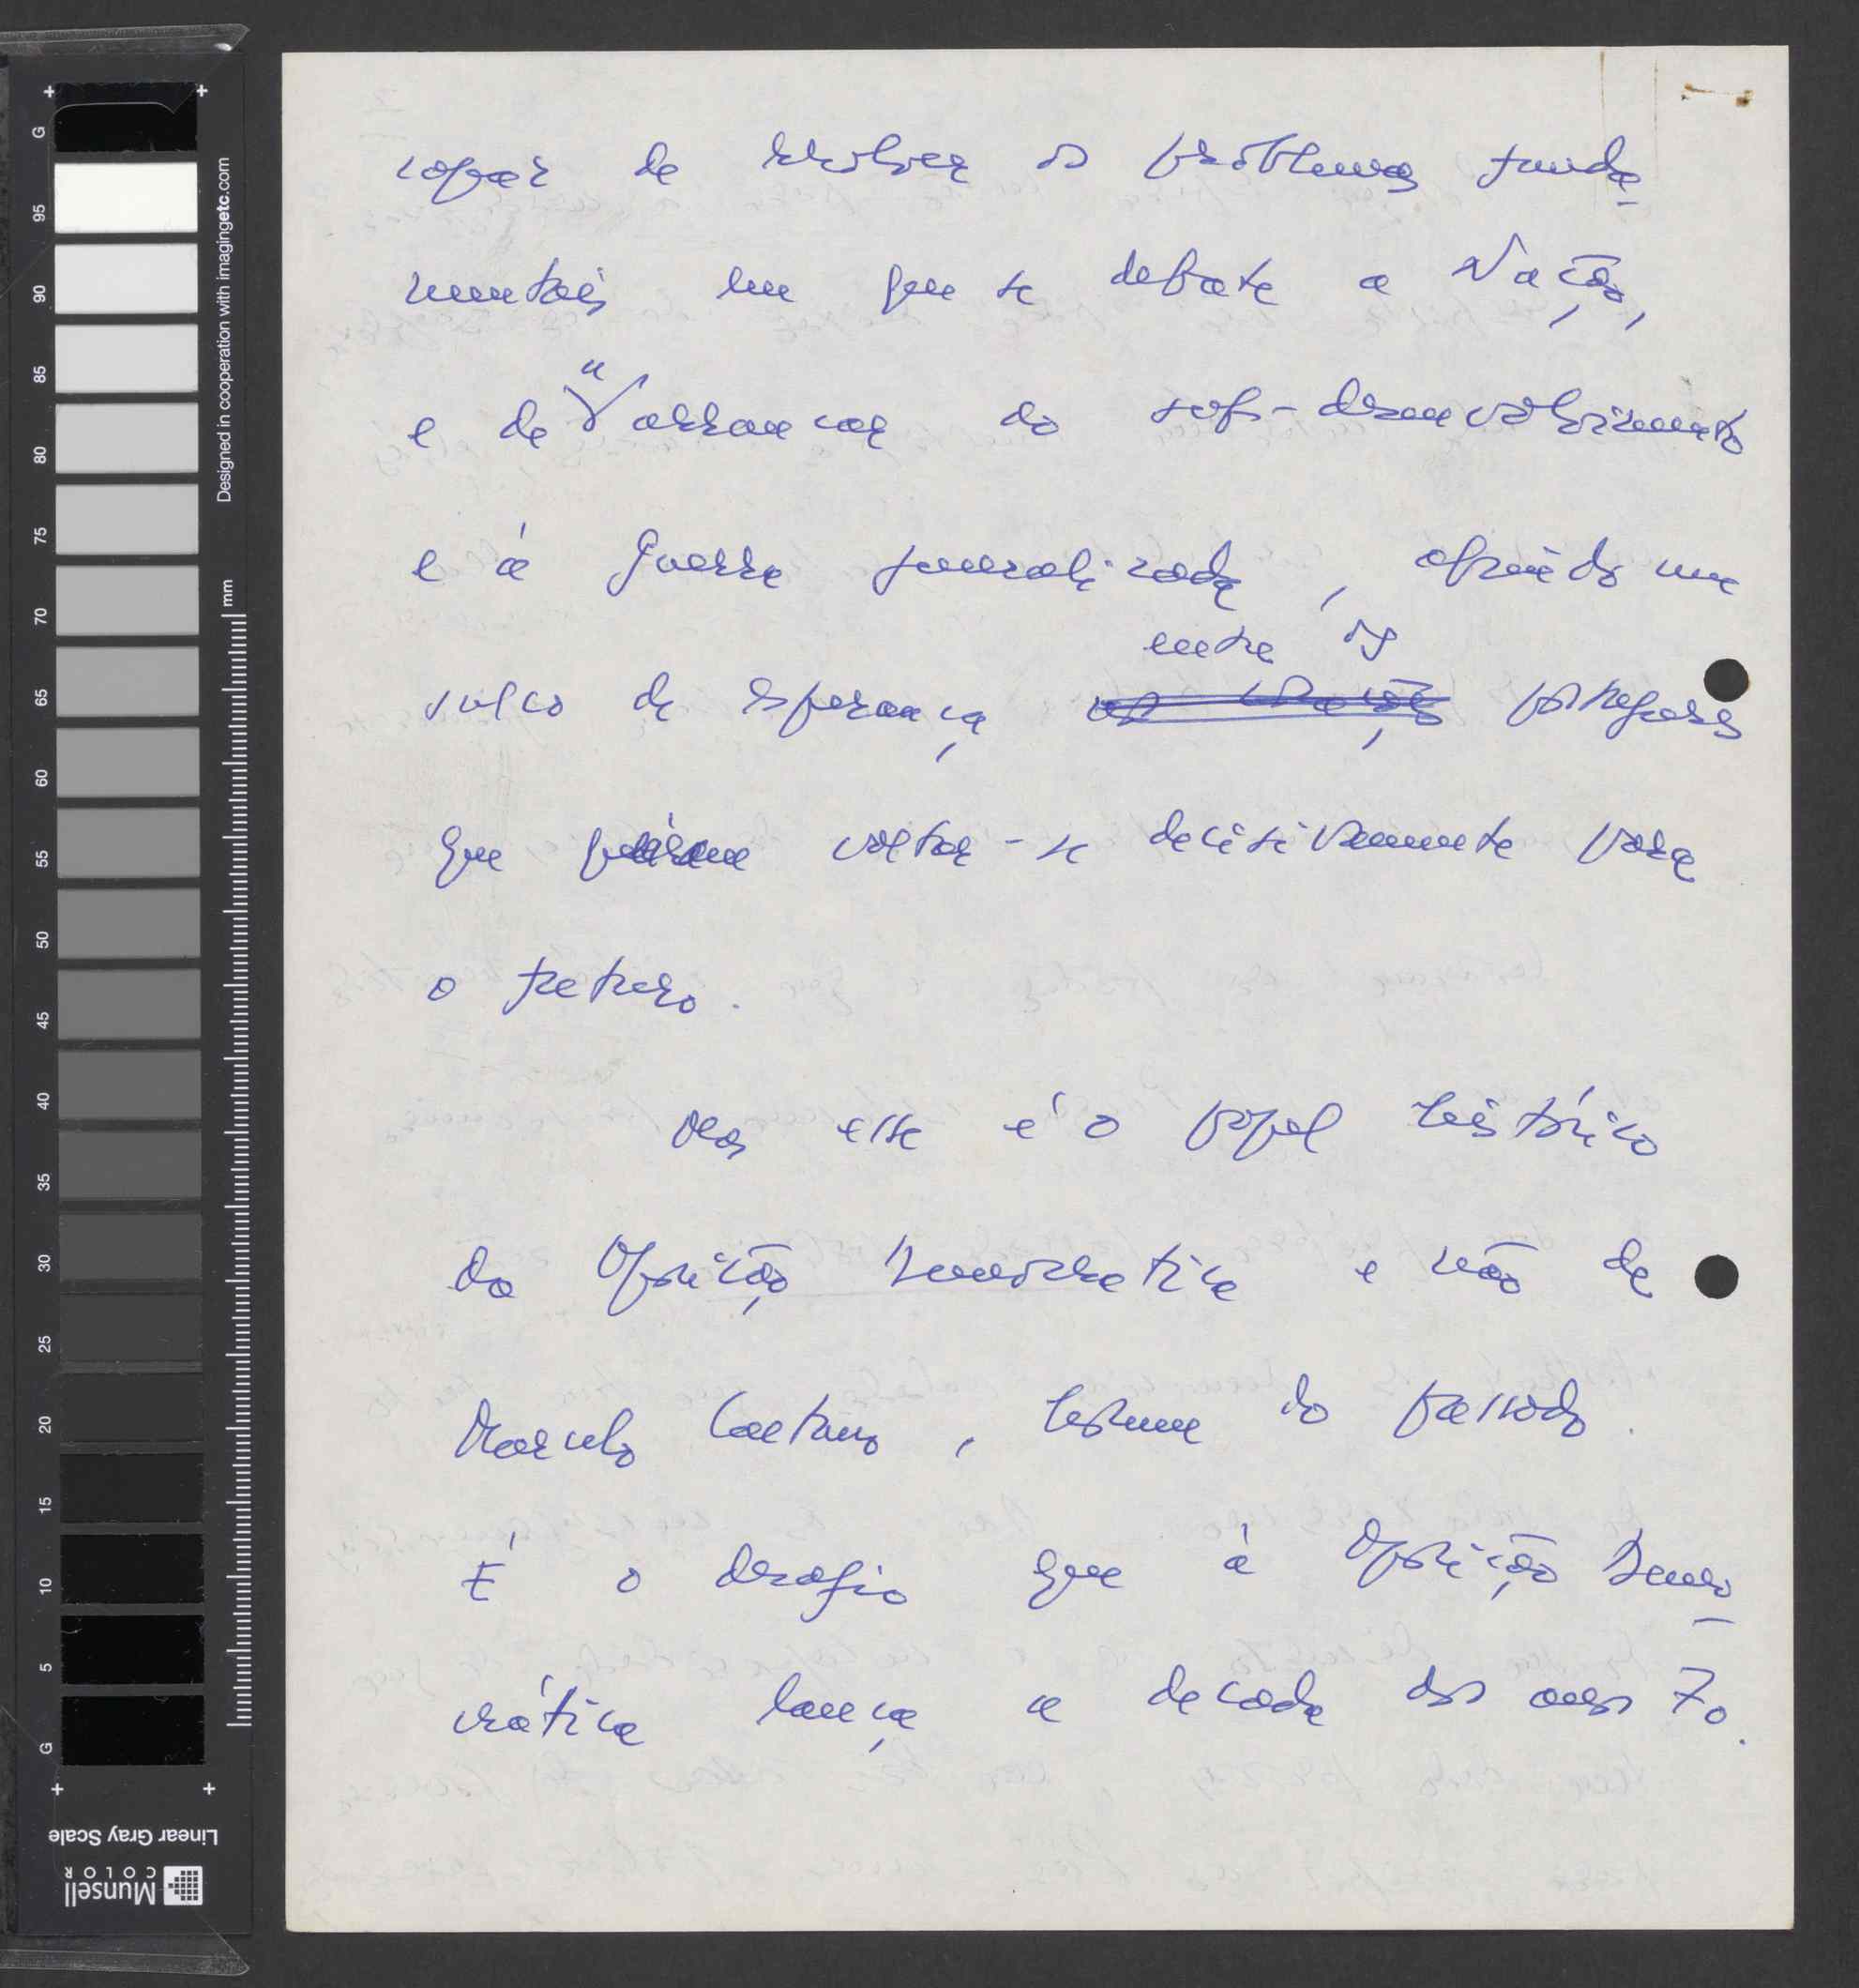 capaz de resolver os problemas funda
mentais em que se debate a Nação,
e de a arrancar do sub-desenvolvimento
e à guerra generalizada, abrindo um
entre os
sulco de esperança portugueses
que queiram voltar-se decisivamente para
o futuro.
Mas esse é o papel histórico
da Oposição Democratica e não de
Marcelo Caetano, homem do passado.
É o desafio que à Oposição Demo
crática lança a decada dos anos 70.
Designed in cooperation with imagingetc.com
mm
G
95
90
85
80
75
70
65
60
55
50
45
40
35
30
25
20
15
10
5
G
Linear Gray Scale
Munsell
COLOR